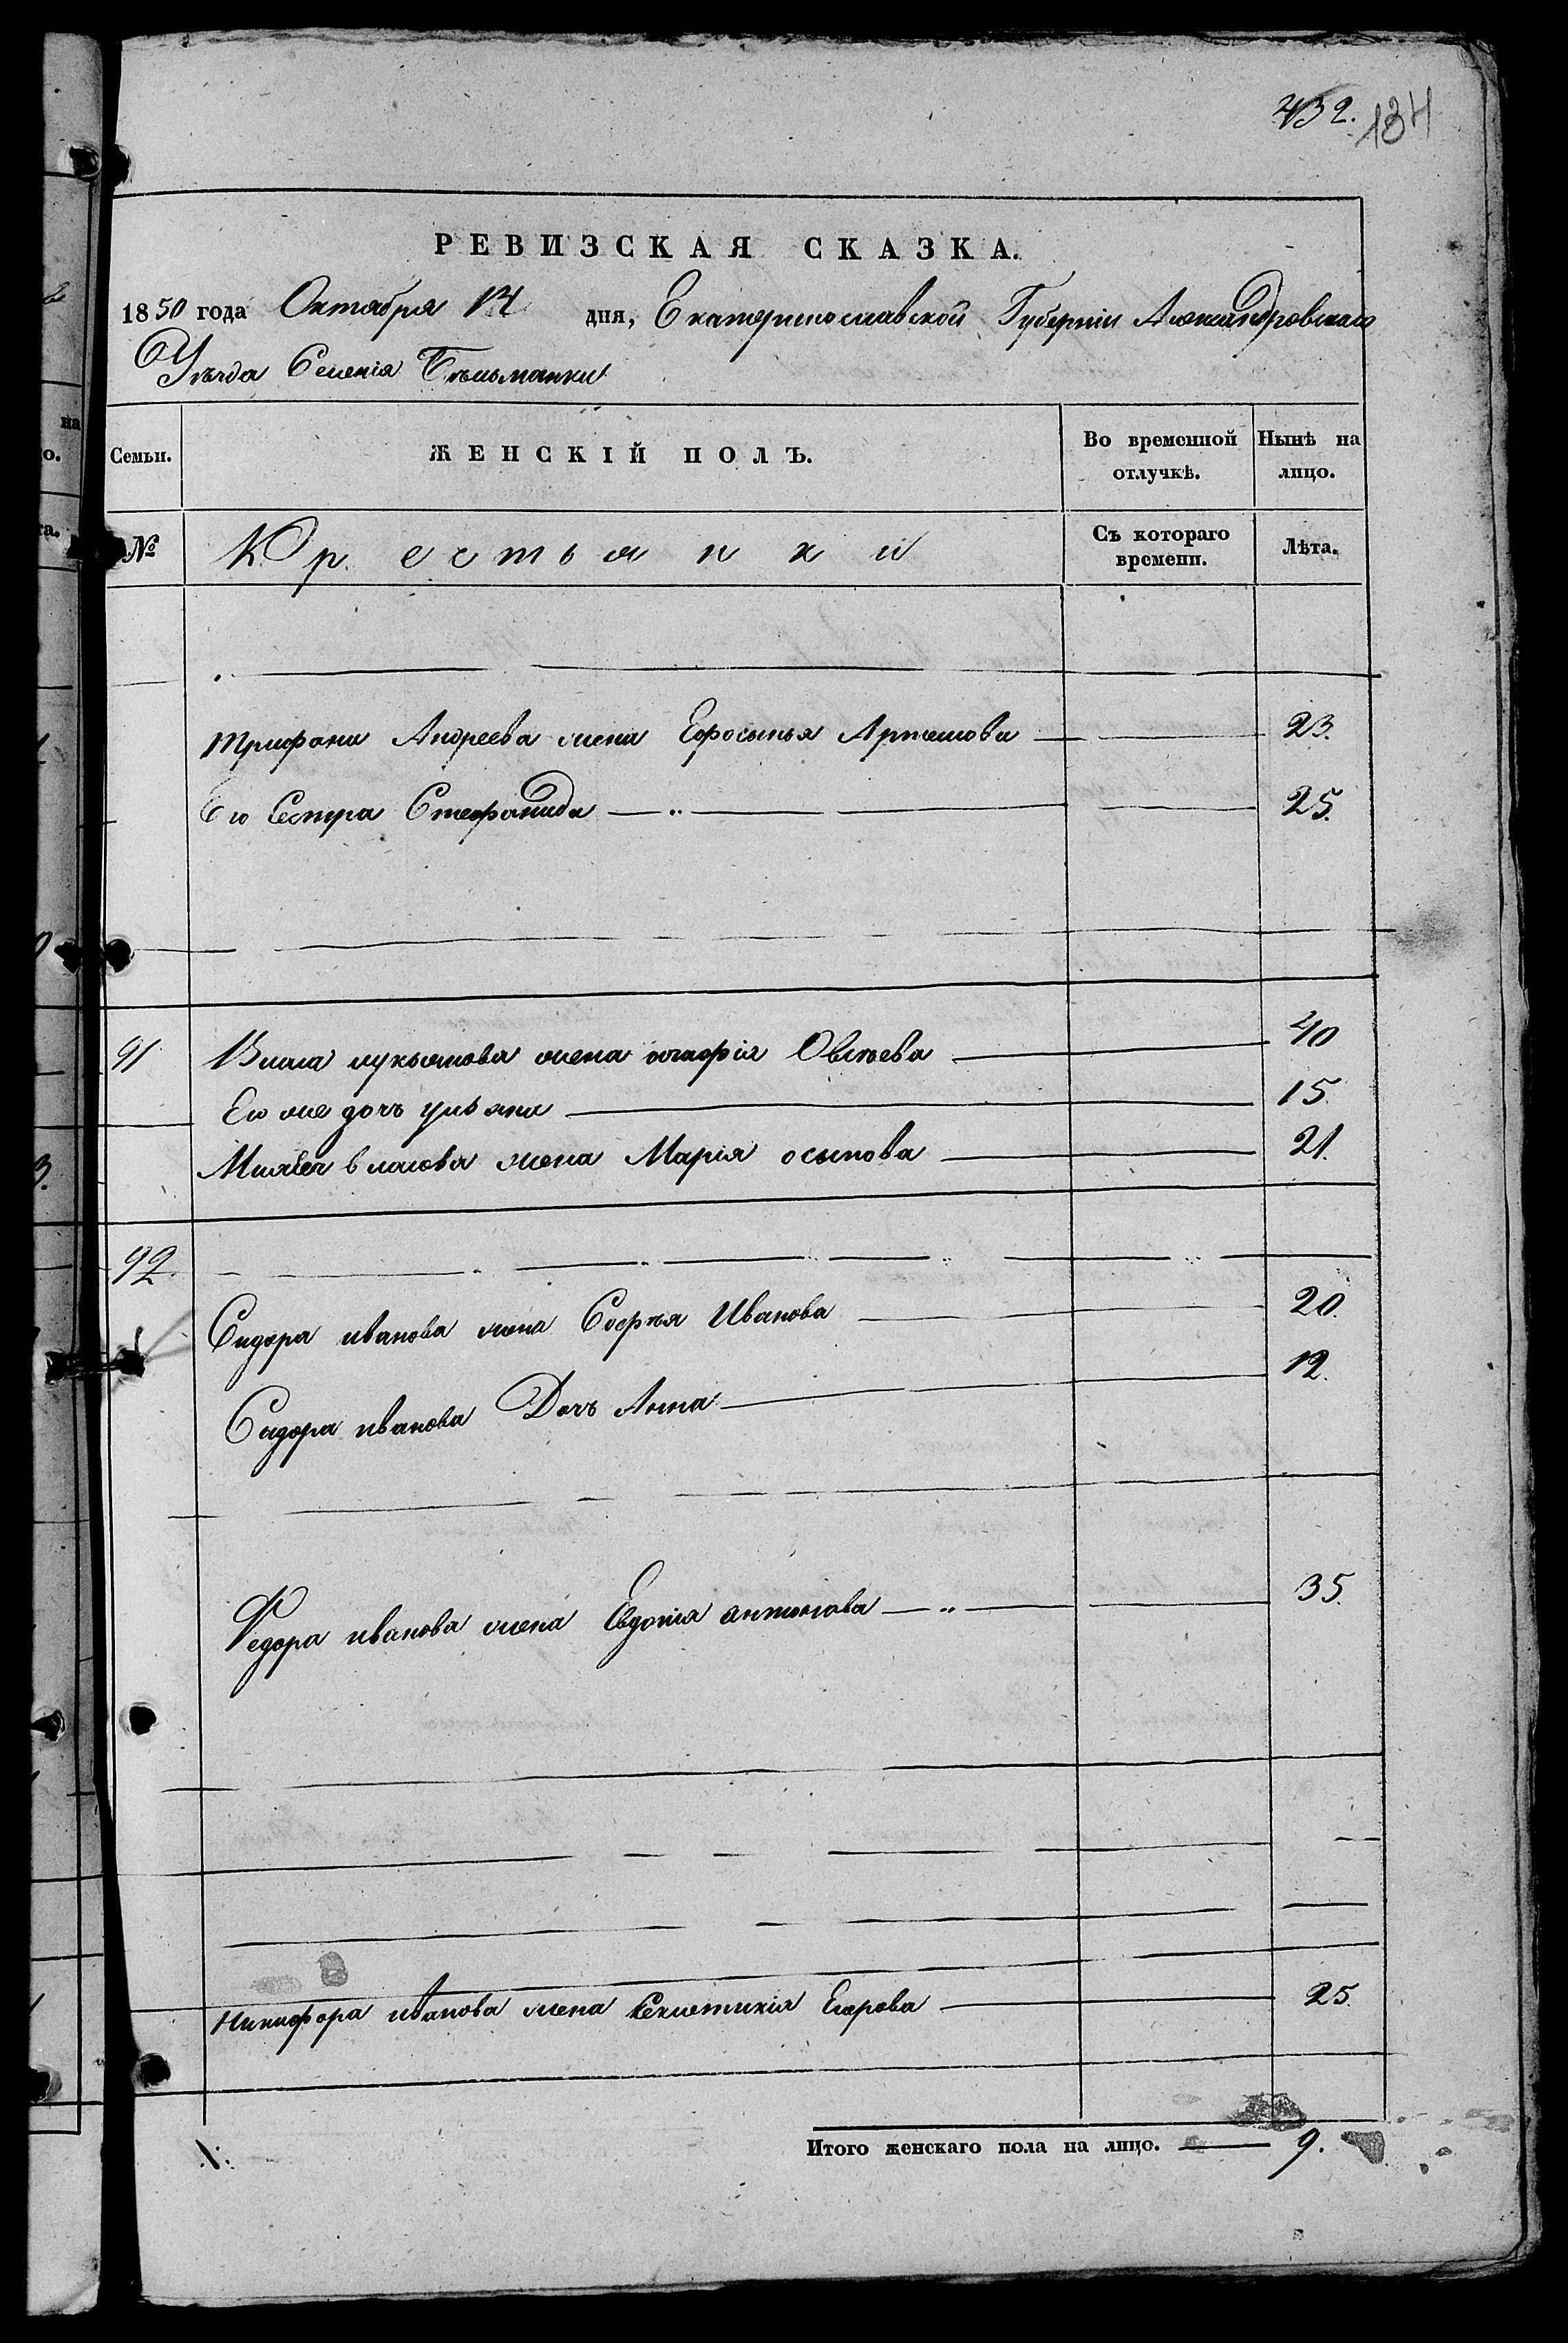 432. 134
РЕВИЗСКАЯ СКАЗКА.
1850 года Октября 14 дня, Екатеринославской Губерніи Александровскаго
Уѣзда Селенія Бѣльманки
Семьи. ЖЕНСКІЙ ПОЛЪ. Во временной отлучкѣ. Нынѣ на лицо.
№ Крестьянки Съ котораго времени. Лѣта.
Трифона Андреева жена Ефросинья Артемова 23.
Его Сестра Стефанида 25.
91 Власа лукьянова жена Овсѣева 40
Его же дочь ульяна 15.
власова жена Марія осипова 21.
92.
Сидора иванова жена Софья Иванова 20.
Сидора иванова Дочь Анна 12.
Федора иванова жена Евдокія антонова 35.
Никифора иванова жена Егорова 25.
Итого женскаго пола на лицо. 9.